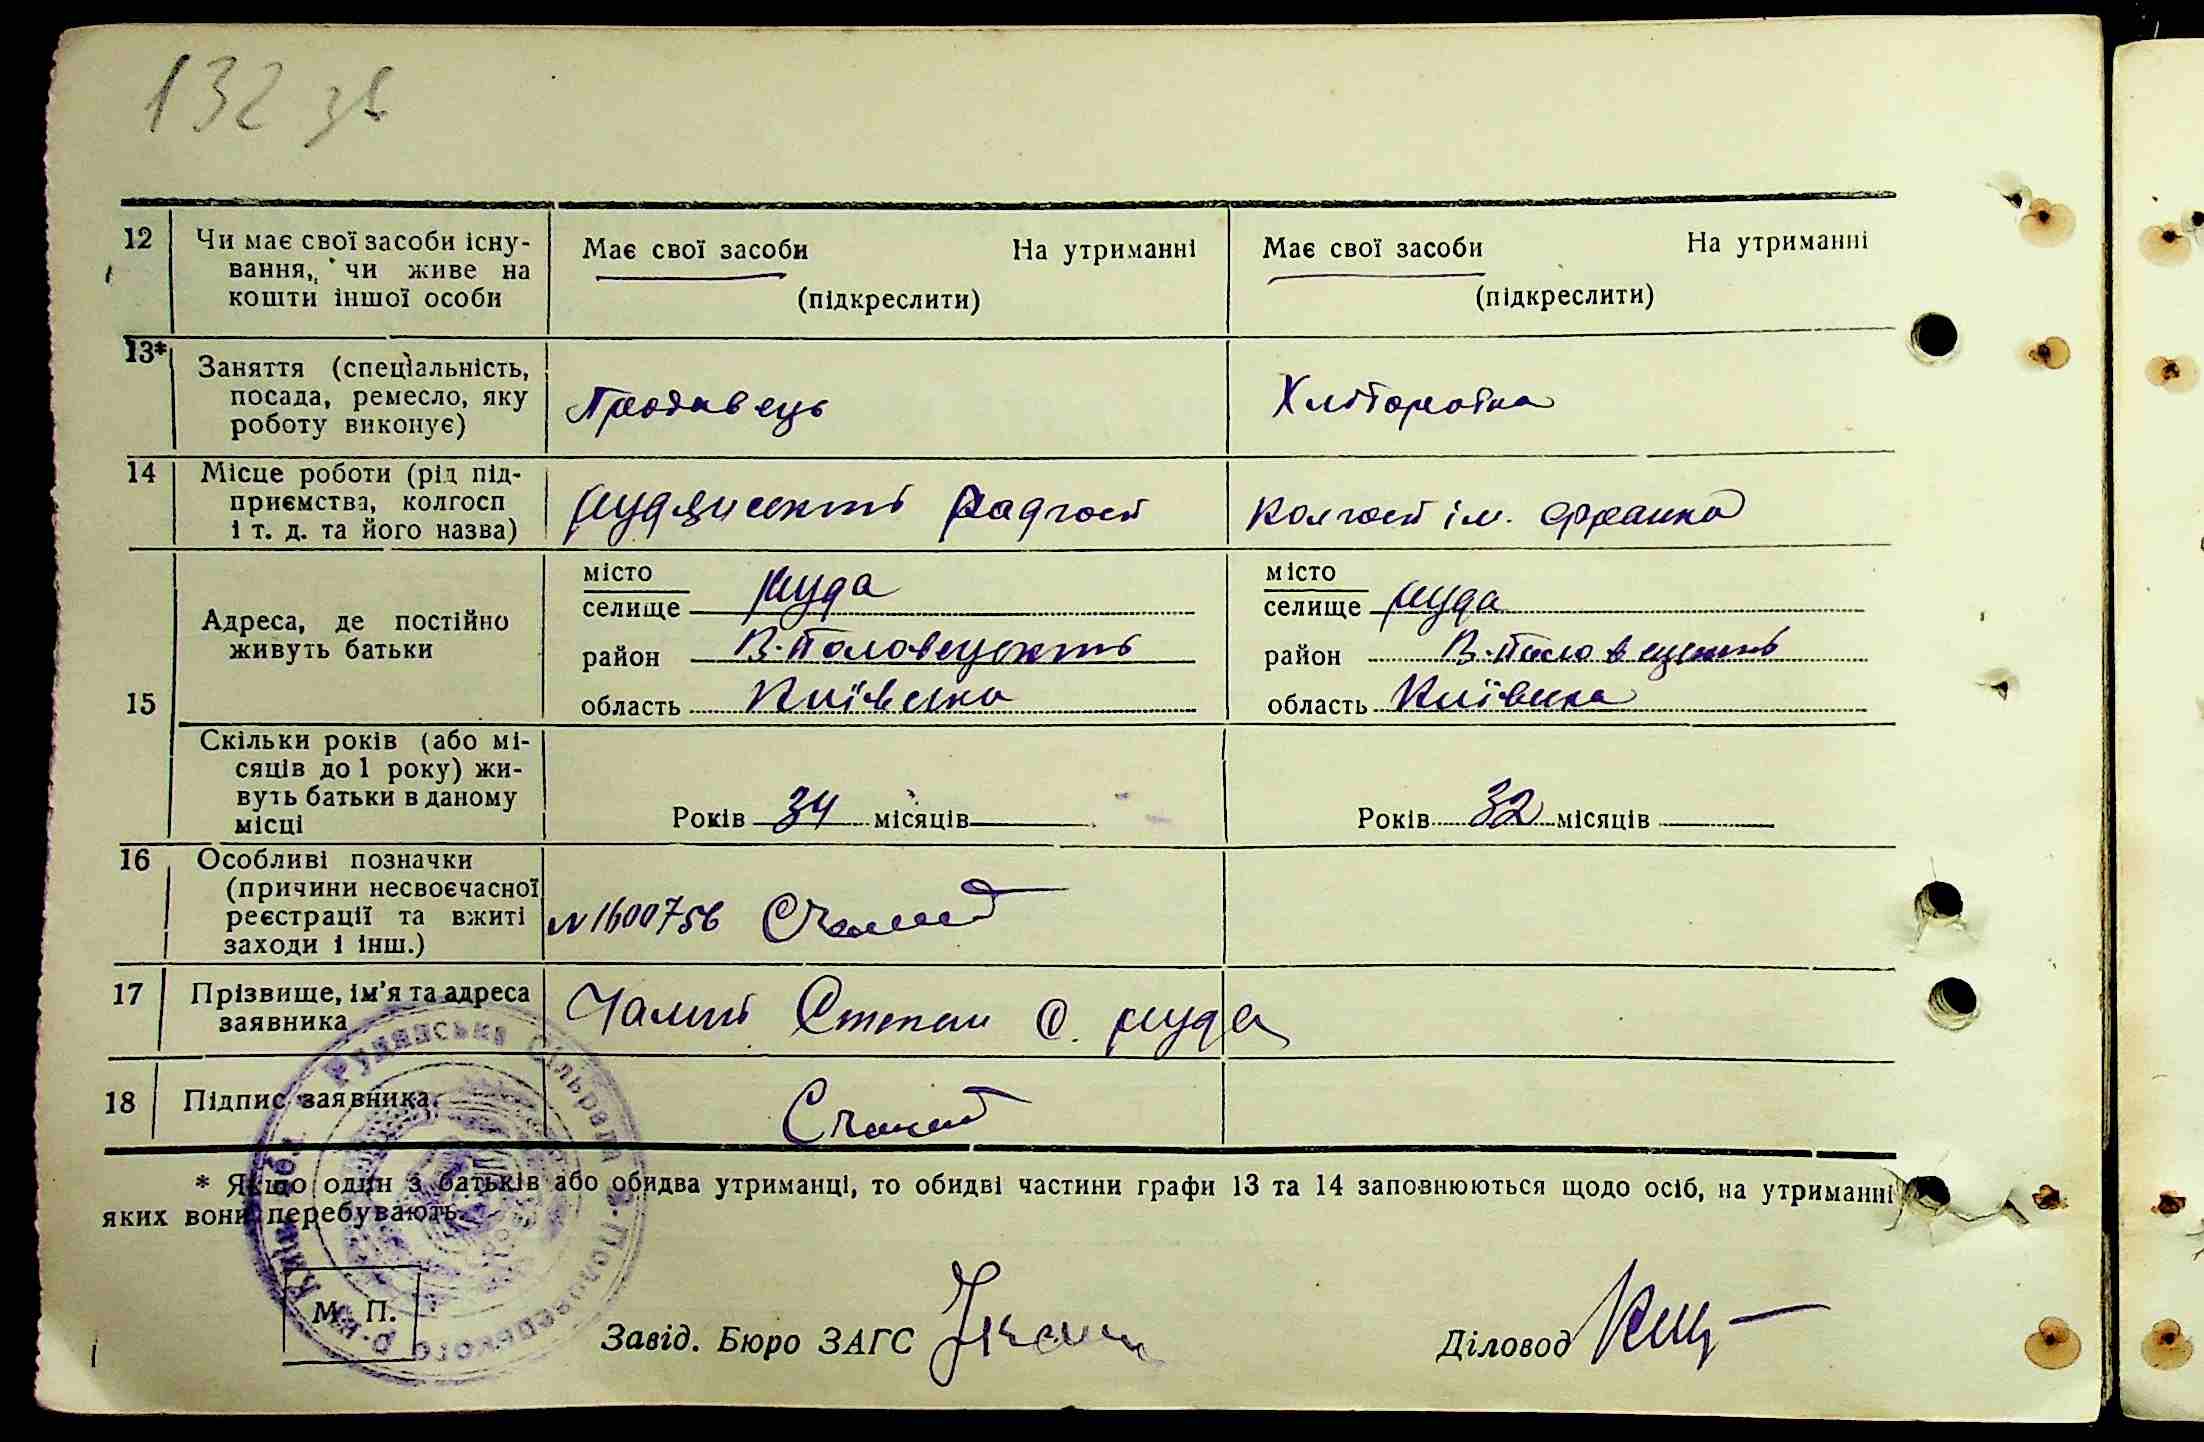 132 зв
12 Чи має свої засоби існу-
вання, чи живе на
кошти іншої особи
Має свої засоби На утриманні
(підкреслити)
Має свої засоби На утриманні
(підкреслити)
13* Заняття (спеціальність,
посада, ремесло, яку
роботу виконує)
Продавець
Хліборобка
14 Місце роботи (рід під-
приємства, колгосп
і т. д. та його назва)
радгосп
Колгосп ім. Франка
15 Адреса, де постійно
живуть батьки
місто
селище Руда
район В-Половецький
область Київська
місто
селище Руда
район В-Половецький
область Київська
Скільки років (або мі-
сяців до 1 року) жи-
вуть батьки в даному
місці
Років 34 місяців
Років 32 місяців
16 Особливі позначки
(причини несвоєчасної
реєстрації та вжиті
заходи і інш.)
N 1600756 СЧалий
17 Прізвище, ім'я та адреса
заявника
Чалий Степан С. Руда
18 Підпис заявника
СЧалий
* Якщо один з батьків або обидва утриманці, то обидві частини графи 13 та 14 заповнюються щодо осіб, на утриманні
яких вони перебувають.
Рудянська Сільрада В-Половецького р-ну Київ. обл.
М. П.
Завід. Бюро ЗАГС
Діловод